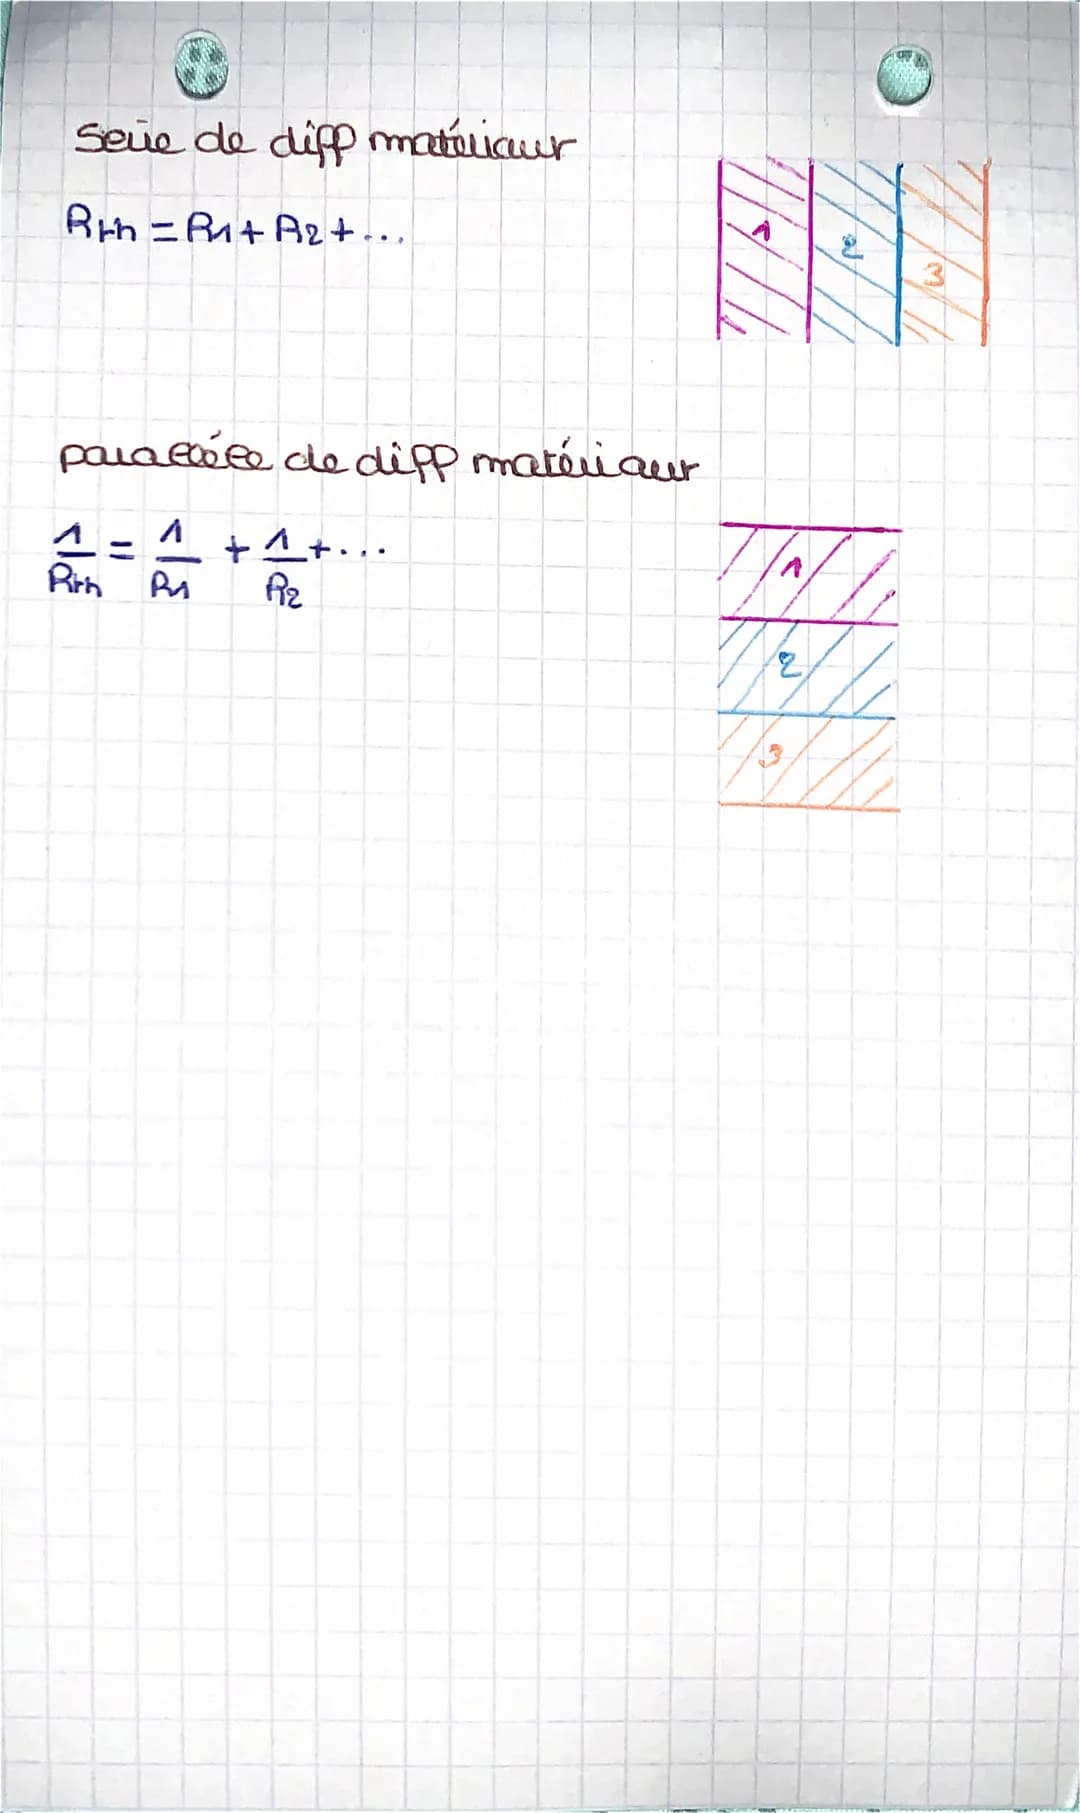 Série de diff matériaux
Rth = R1 + R2 + ...
1
2
3
parallèle de diff matériaux
1/Rth = 1/R1 + 1/R2 + ...
1
2
3